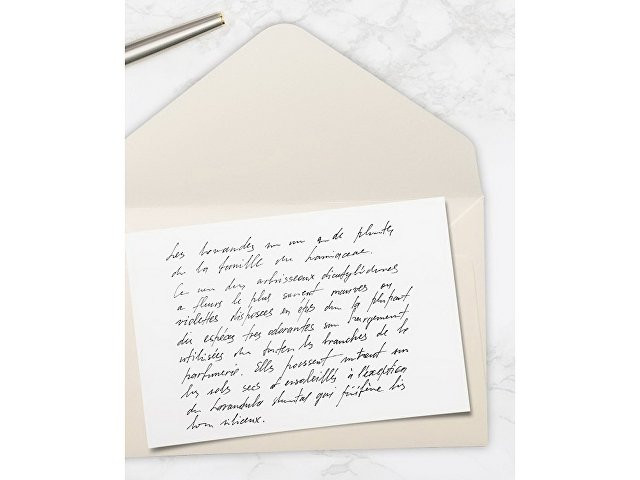 Les lavandes un un g de plantes
de la famille du Lamiaceae.
Ce un des arbrisseaux dicotylédones
a fleurs le plus souvent mauves ou
violettes disposées en épis du la plupart
des espéces tres odorantes son largement
utilisées du toutes les branches de la
parfumerie. Elles poussent surtout un
les sols secs d ensoleillés à l'exception
du Lavandula qui préfère les
siliceux.